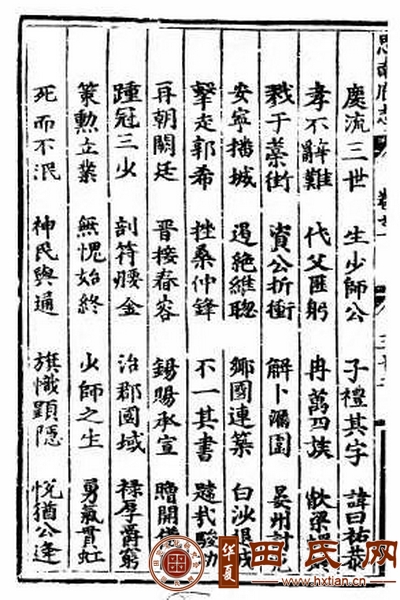 思南府志
慶流三世 生少師公 子禮其字 諱曰祐恭
孝不辭難 代父匪躬 冉萬四族 梁
戮于藁街 資公折衝 解卜漏圍 晏州討
安寧播城 遏絕維聰 鄉國連築 白沙
擊走郭希 挫桑仲鋒 不一其書 哉駿功
再朝闕廷 晉接春容 錫賜承宣 開
踵冠三少 剖符腰金 治郡國域 祿厚爵窮
策勳立業 無愧始終 少師之生 勇氣貫虹
死而不泯 神民與通 旗幟顯隱 恍猶公逢
华夏
田氏网
www.hxtian.cn